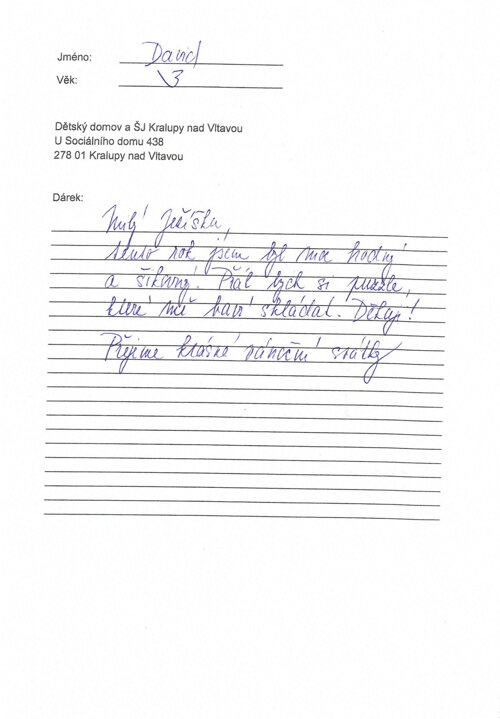 Jméno: David
Věk: 13
Dětský domov a ŠJ Kralupy nad Vltavou
U Sociálního domu 438
278 01 Kralupy nad Vltavou
Dárek:
Milý Ježíšku,
tento rok jsem byl moc hodný
a šikovný. Přál bych si puzzle,
které mě baví skládat. Děkuji!
Přejeme krásné vánoční svátky